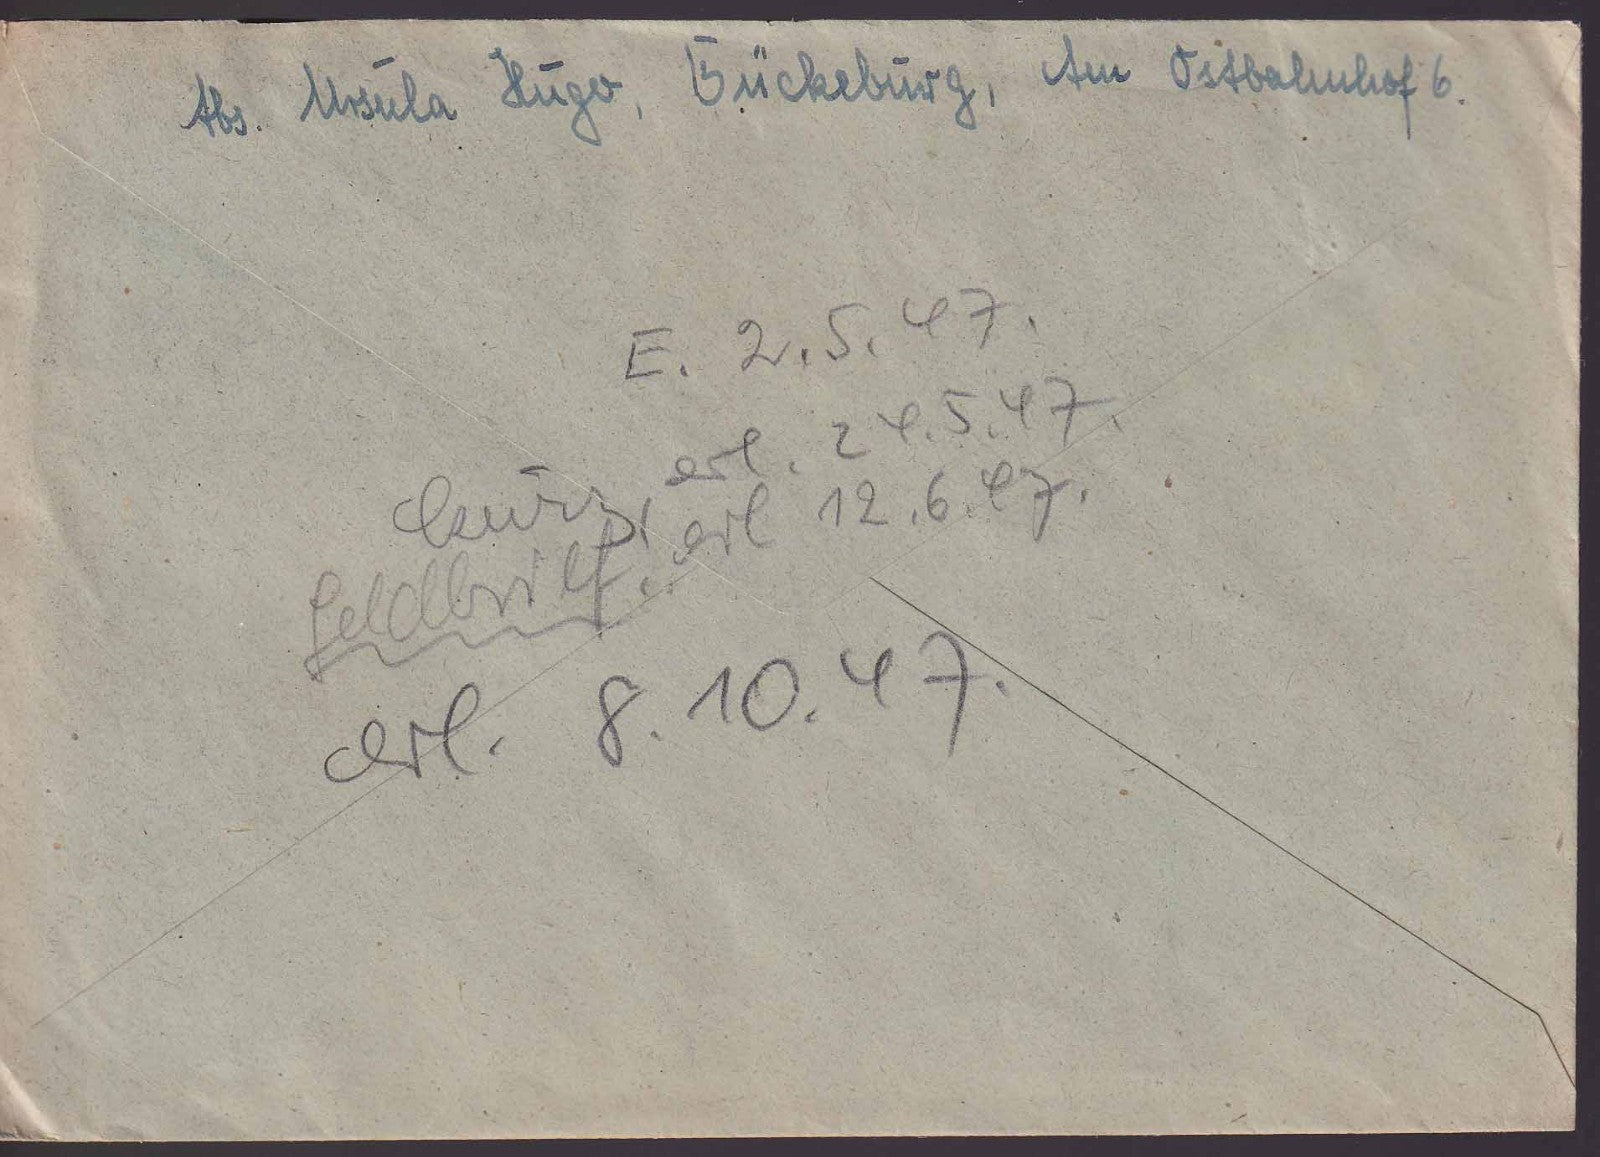 Abs. Ursula Hugo, Bückeburg, Am Ostbahnhof 6.
E. 2.5.47.
kurz, erl. 24.5.47.
erl 12.6.47.
erl. 8.10.47.